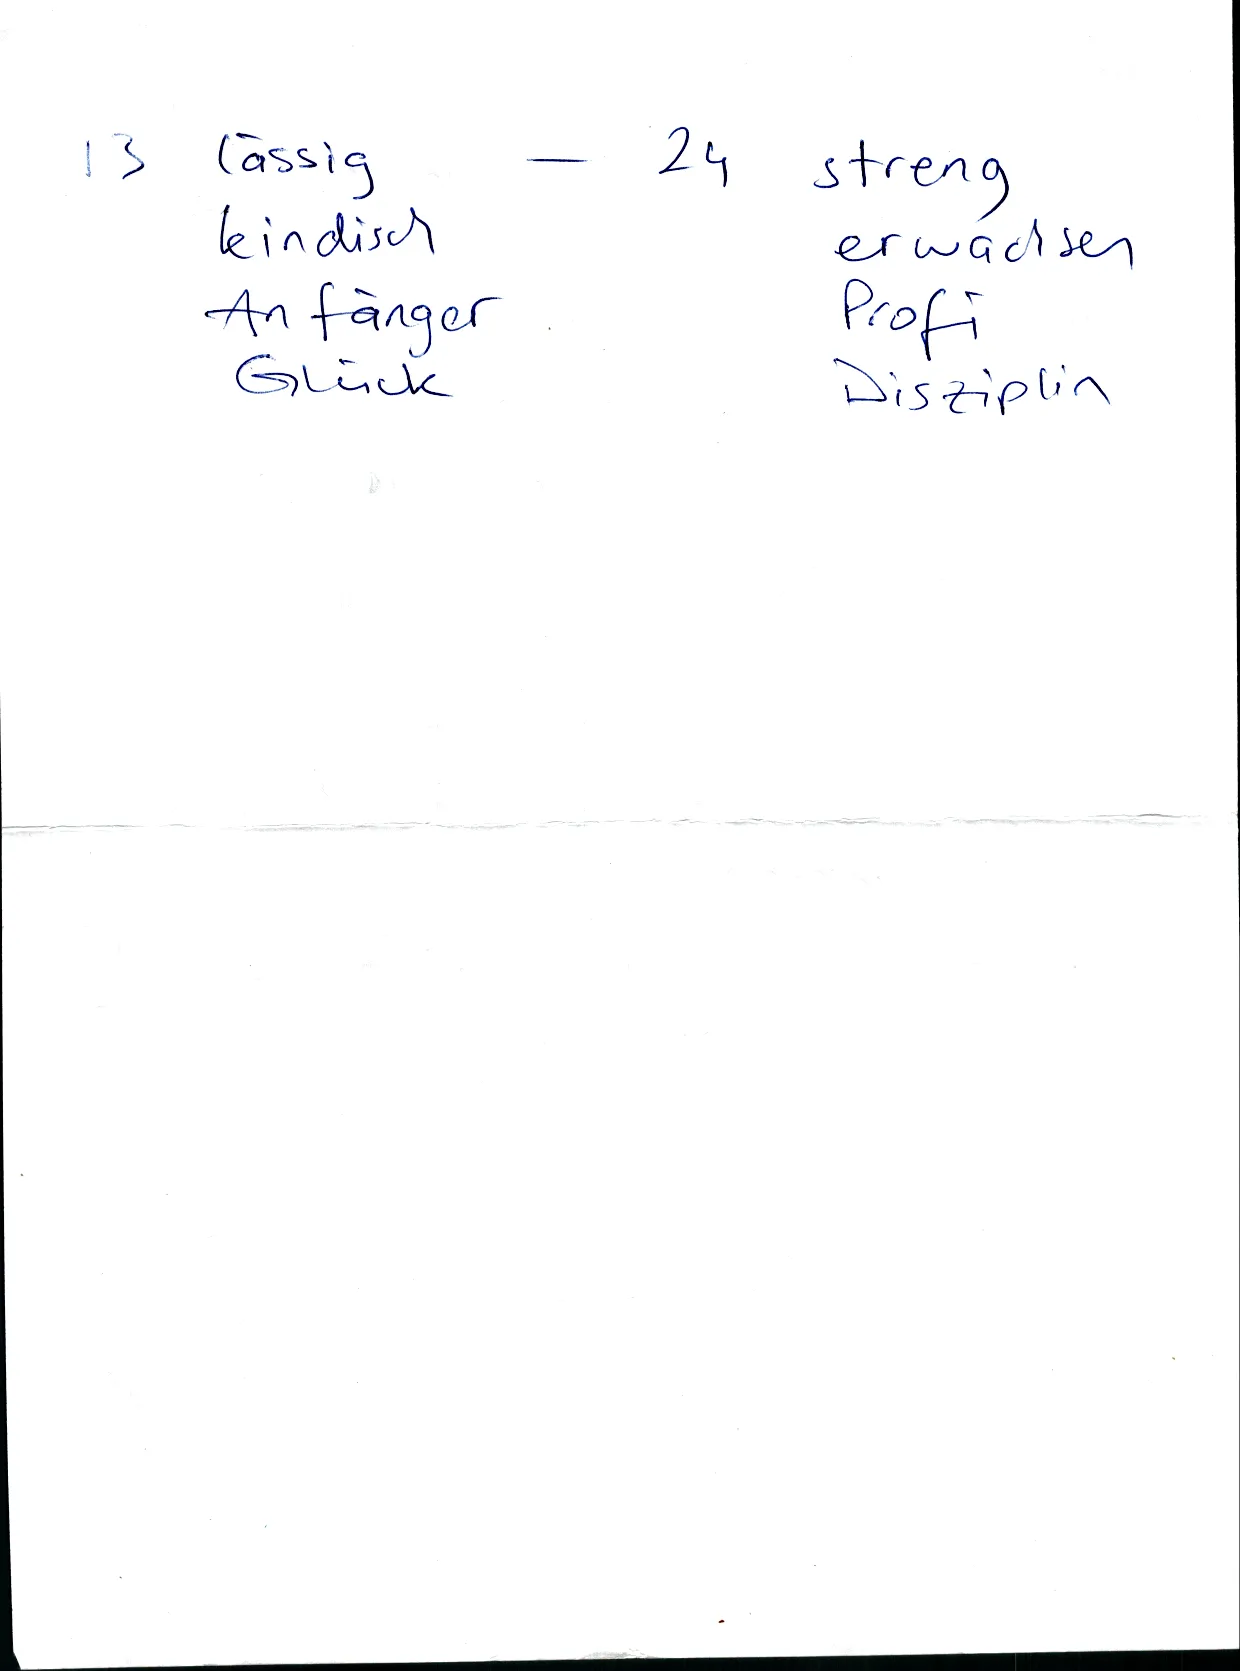 13 lässig — 24 streng
kindisch erwachsen
Anfänger Profi
Glück Disziplin